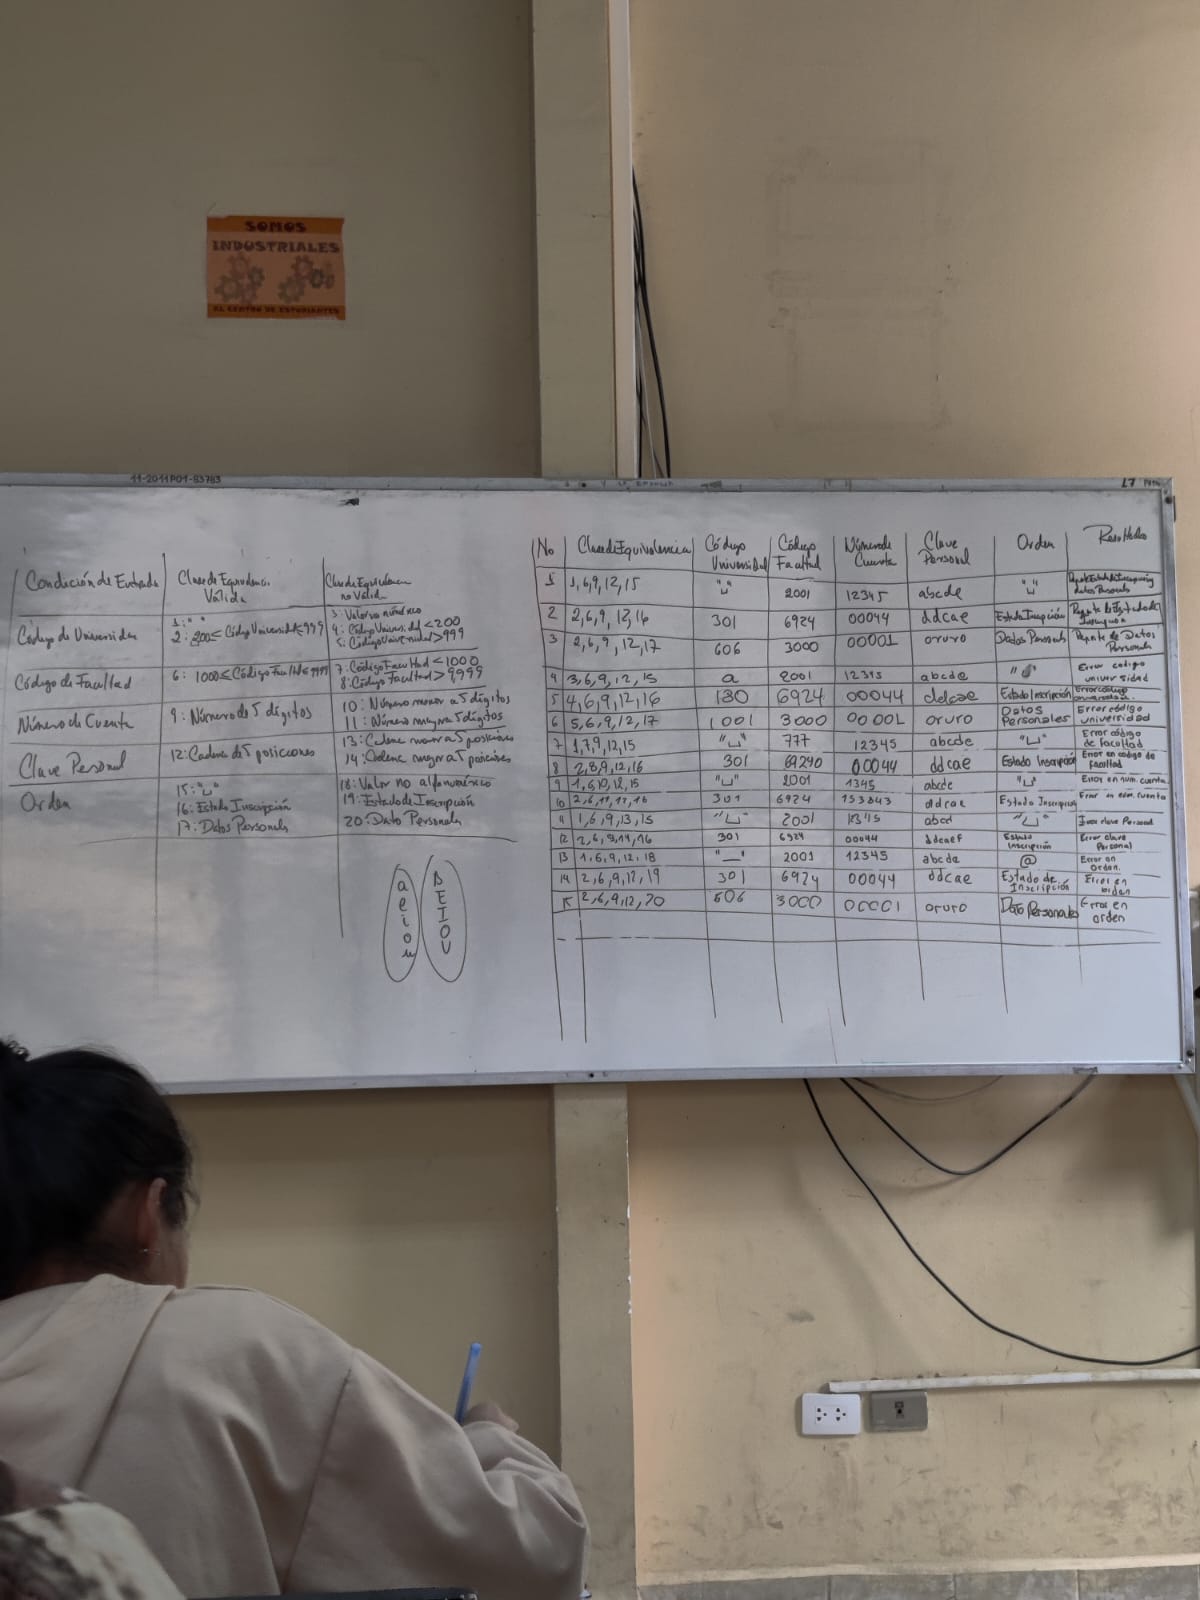 SOMOS
INDUSTRIALES
AL CENTRO DE ESTUDIANTES
11-2011P01-83783
Condición de Entrada | Clase de Equivalencia Válida | Clase de Equivalencia no Válida
Código de Universidad | 1: " " | 3: Valor no numérico
2: 200 ≤ Código Universidad ≤ 999 | 4: Código Universidad < 200
5: Código Universidad > 999
Código de Facultad | 6: 1000 ≤ Código Facultad ≤ 9999 | 7: Código Facultad < 1000
8: Código Facultad > 9999
Número de Cuenta | 9: Número de 5 dígitos | 10: Número menor a 5 dígitos
11: Número mayor a 5 dígitos
Clave Personal | 12: Cadena de 5 posiciones | 13: Cadena menor a 5 posiciones
14: Cadena mayor a 5 posiciones
Orden | 15: "⊔" | 18: Valor no alfanumérico
16: Estado Inscripción | 19: Estado de Inscripción
17: Datos Personals | 20: Dato Personals
a e i o u
A E I O U
No | Clase de Equivalencia | Código Universidad | Código Facultad | Número de Cuenta | Clave Personal | Orden | Resultados
1 | 1,6,9,12,15 | "⊔" | 2001 | 12345 | abcde | "⊔" | Datos Personals
2 | 2,6,9,12,16 | 301 | 6924 | 00044 | ddcae | Estado Inscripción | Reporte de Estado de Inscripción
3 | 2,6,9,12,17 | 606 | 3000 | 00001 | oruro | Datos Personals | Reporte de Datos Personals
4 | 3,6,9,12,15 | a | 2001 | 12345 | abcde | Error código universidad
5 | 4,6,9,12,16 | 130 | 6924 | 00044 | ddcae | Estado Inscripción | Error código universidad
6 | 5,6,9,12,17 | 1001 | 3000 | 00001 | oruro | Datos Personales | Error código universidad
7 | 1,7,9,12,15 | "⊔" | 777 | 12345 | abcde | "⊔" | Error código de facultad
8 | 2,8,9,12,16 | 301 | 69240 | 00044 | ddcae | Estado Inscripción | Error en código de facultad
9 | 1,6,10,12,15 | "⊔" | 2001 | 1345 | abcde | "⊔" | Error en num. cuenta
10 | 2,6,11,12,16 | 301 | 6924 | ddcae | Estado Inscripción | Error en núm. cuenta
11 | 1,6,9,13,15 | "⊔" | 2001 | abcd | "⊔" | Error clave Personal
12 | 2,6,9,14,16 | 301 | 6924 | 00044 | ddcaef | Estado Inscripción | Error clave Personal
13 | 1,6,9,12,18 | "⊔" | 2001 | 12345 | abcde | @ | Error en Orden.
14 | 2,6,9,12,19 | 301 | 6924 | 00044 | ddcae | Estado de Inscripción | Error en orden
15 | 2,6,9,12,20 | 606 | 3000 | 00001 | oruro | Dato Personales | Error en orden